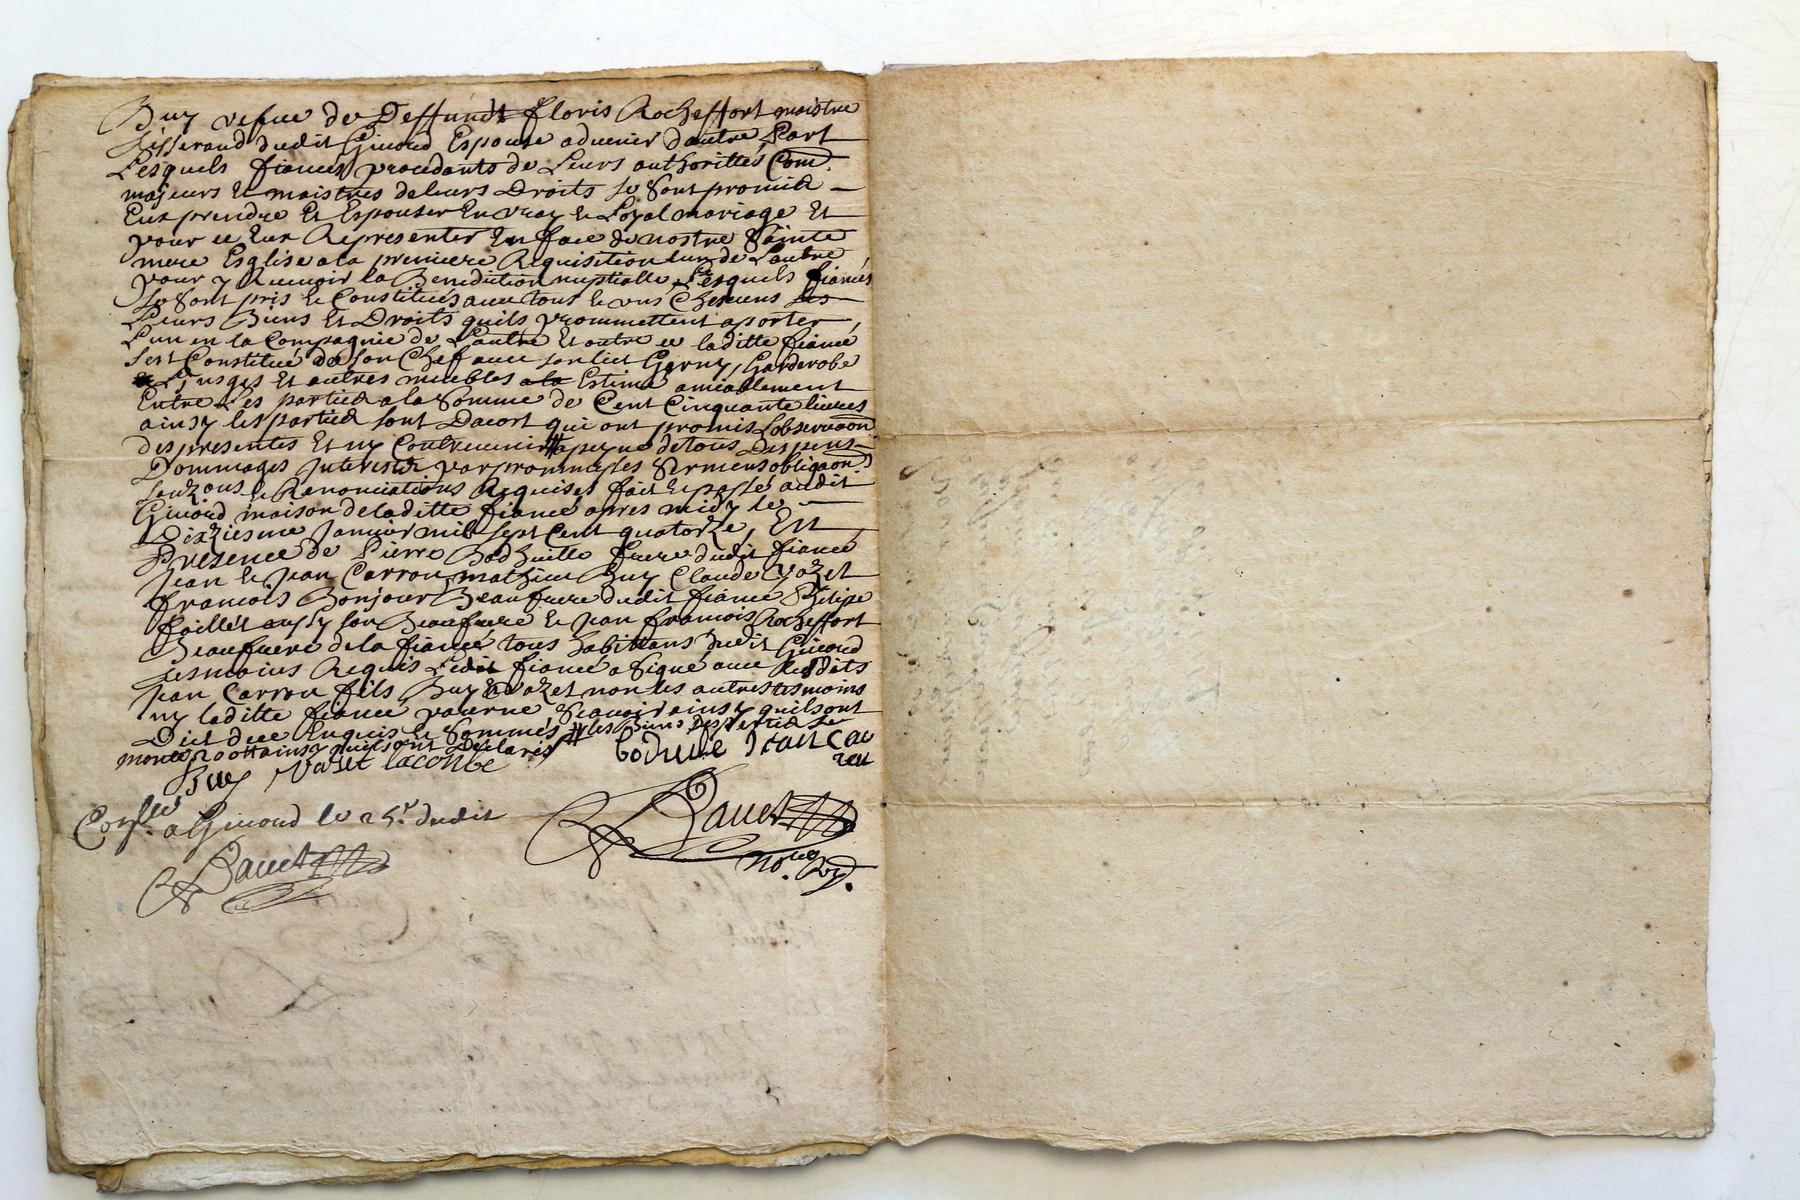 Buy vefue de Deffunct floris Rocheffort maistre
tisserand dudit Givord Espouse advenir dautre Part
Lesquels fiancés procedants de Leurs authorittés Com
majeurs et maistres de leurs Droits se sont promis
Eux prendre Et Espouser En vray et Loyal mariage Et
pour ce Eux Representer En face de nostre Sainte
mere Esglise a la premiere Requisition lun de Lautre
pour y Recevoir la Benediction nuptialle Lesquels fiancés
se sont pris et Constitués avec tous et uns Chascuns
Leurs Biens Et Droits quils prommettent aporter
Lun en la Compagnie de Lautre Et outre ce laditte fiancé
sest Constitué de son Chef avec son lict Garny, Garderobe
Linges Et autres meubles Estimé amiablement
Entre Les parties a la Somme de Cent Cinquante livres
ainsy les parties sont Dacort qui ont promis Lobservaon
des presentes Et ny Contrevenir # a peyne de tous Despens
Dommages Interests par prommesses Sermens obligaons
Renonciations Requises fait et passé audit
Givord maison de laditte fiancé apres midy le
Dixziesme Janvier mil sept Cent quatorze, En
Presence de Pierre Bodhuille frere dudit fiancé
Jean et Jean Carron mathieu Buy Claude Vozet
francois Bonjour Beaufrere dudit fiancé Philipe
faillet aussy son Beaufrere et Jean francois Rocheffort
Beaufrere de la fiancé tous habittans dudit Givord
tesmoins Requis Ledit fiancé a Signé avec lesdits
Jean Carron fils Buy et Vozet non les autres tesmoins
ny laditte fiancé pour ne Scavoir ainsy quils ont
Dict de ce Enquis et Sommés # les Biens des parties se
montent 200tt ainsy quils ont Declarés #
Buy Vozet lacombe bodulle Jean Car
ron
a Givord le 25e dudit
Bauet
Bauet
Nore